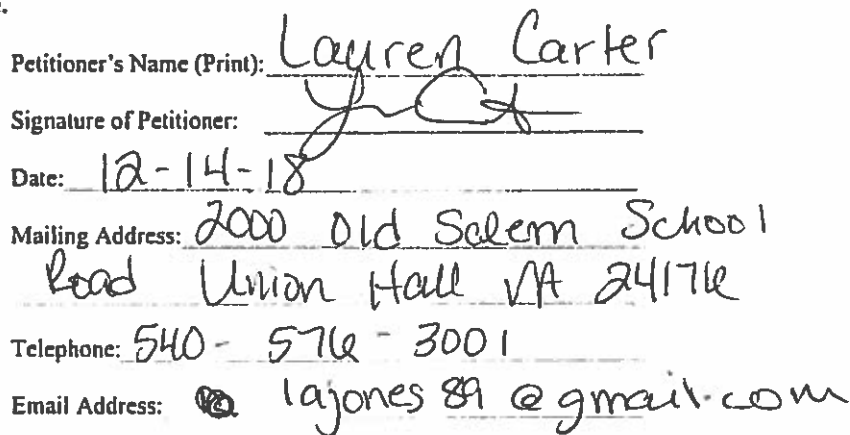 Petitioner's Name (Print): Lauren Carter
Signature of Petitioner:
Date: 12-14-18
Mailing Address: 2000 Old Salem School
Road Union Hall VA 24176
Telephone: 540-576-3001
Email Address: lajones89@gmail.com